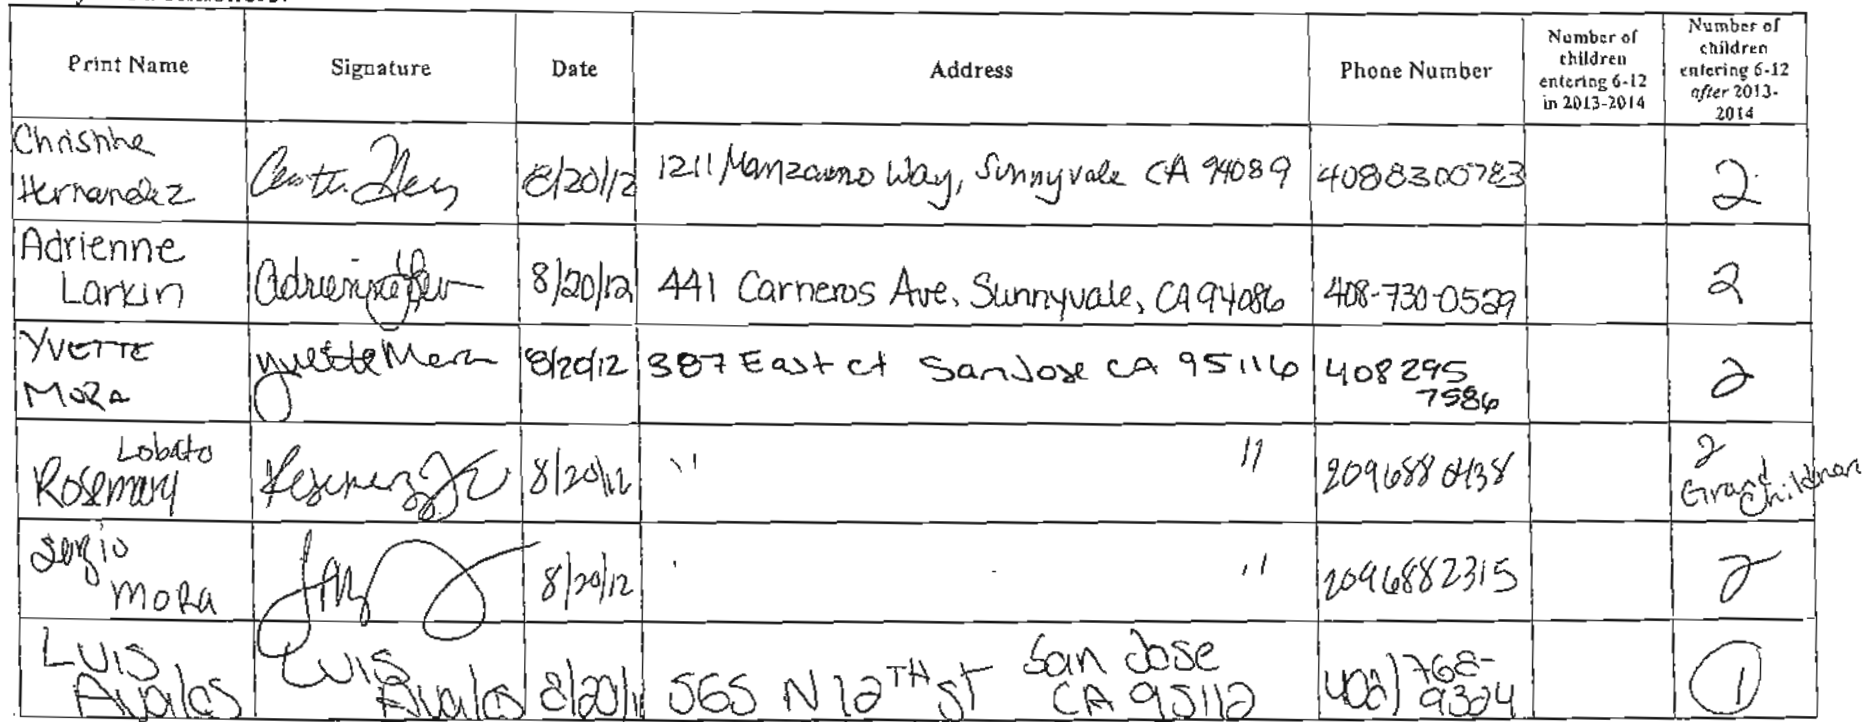 Print Name Signature Date Address Phone Number Number of children entering 6-12 in 2013-2014 Number of children entering 6-12 after 2013-2014
Christine Hernandez 8/20/12 1211 Manzano Way, Sunnyvale CA 94089 4088300783 2
Adrienne Larkin 8/20/12 441 Carneros Ave, Sunnyvale, CA 94086 408-730-0529 2
YVETTE MORA Yvette Mora 8/20/12 387 East ct San Jose CA 95116 408 295 7586 2
Lobato Rosemary 8/20/12 " " 2 Grand children
Sergio MORA 8/20/12 " 2096882315 2
LUIS Avalos LUIS Avalos 565 N 12TH St San Jose CA 95112 408) 768-9324 1